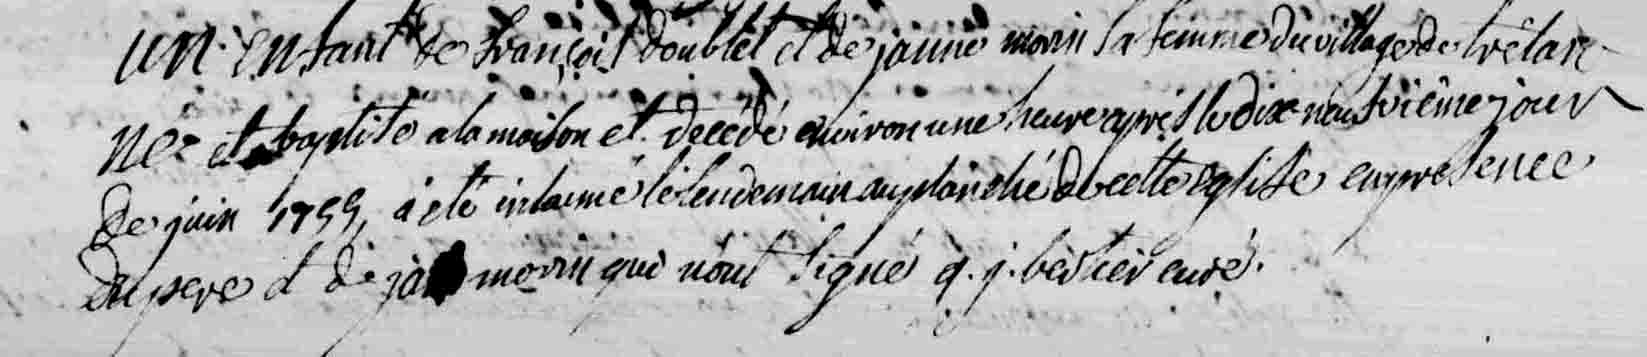 un enfant de françois doublet et de janne morin sa femme du village de trélan
né et baptisé a la maison et decédé environ une heure après le dix neufvième jour
de juin 1755, a eté inhumé le lendemain au planché de cette eglise en presence
du pere et de ja morin qui n'ont signé q. j. bertier curé.